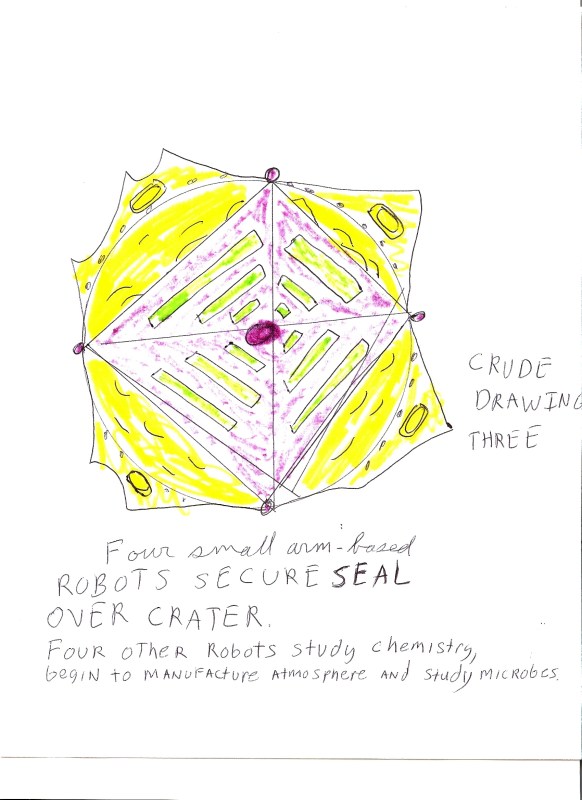 CRUDE
DRAWING
THREE
Four small arm-based
ROBOTS SECURE SEAL
OVER CRATER.
FOUR OTHER ROBOTS STUDY CHEMISTRY,
BEGIN TO MANUFACTURE ATMOSPHERE AND STUDY MICROBES.